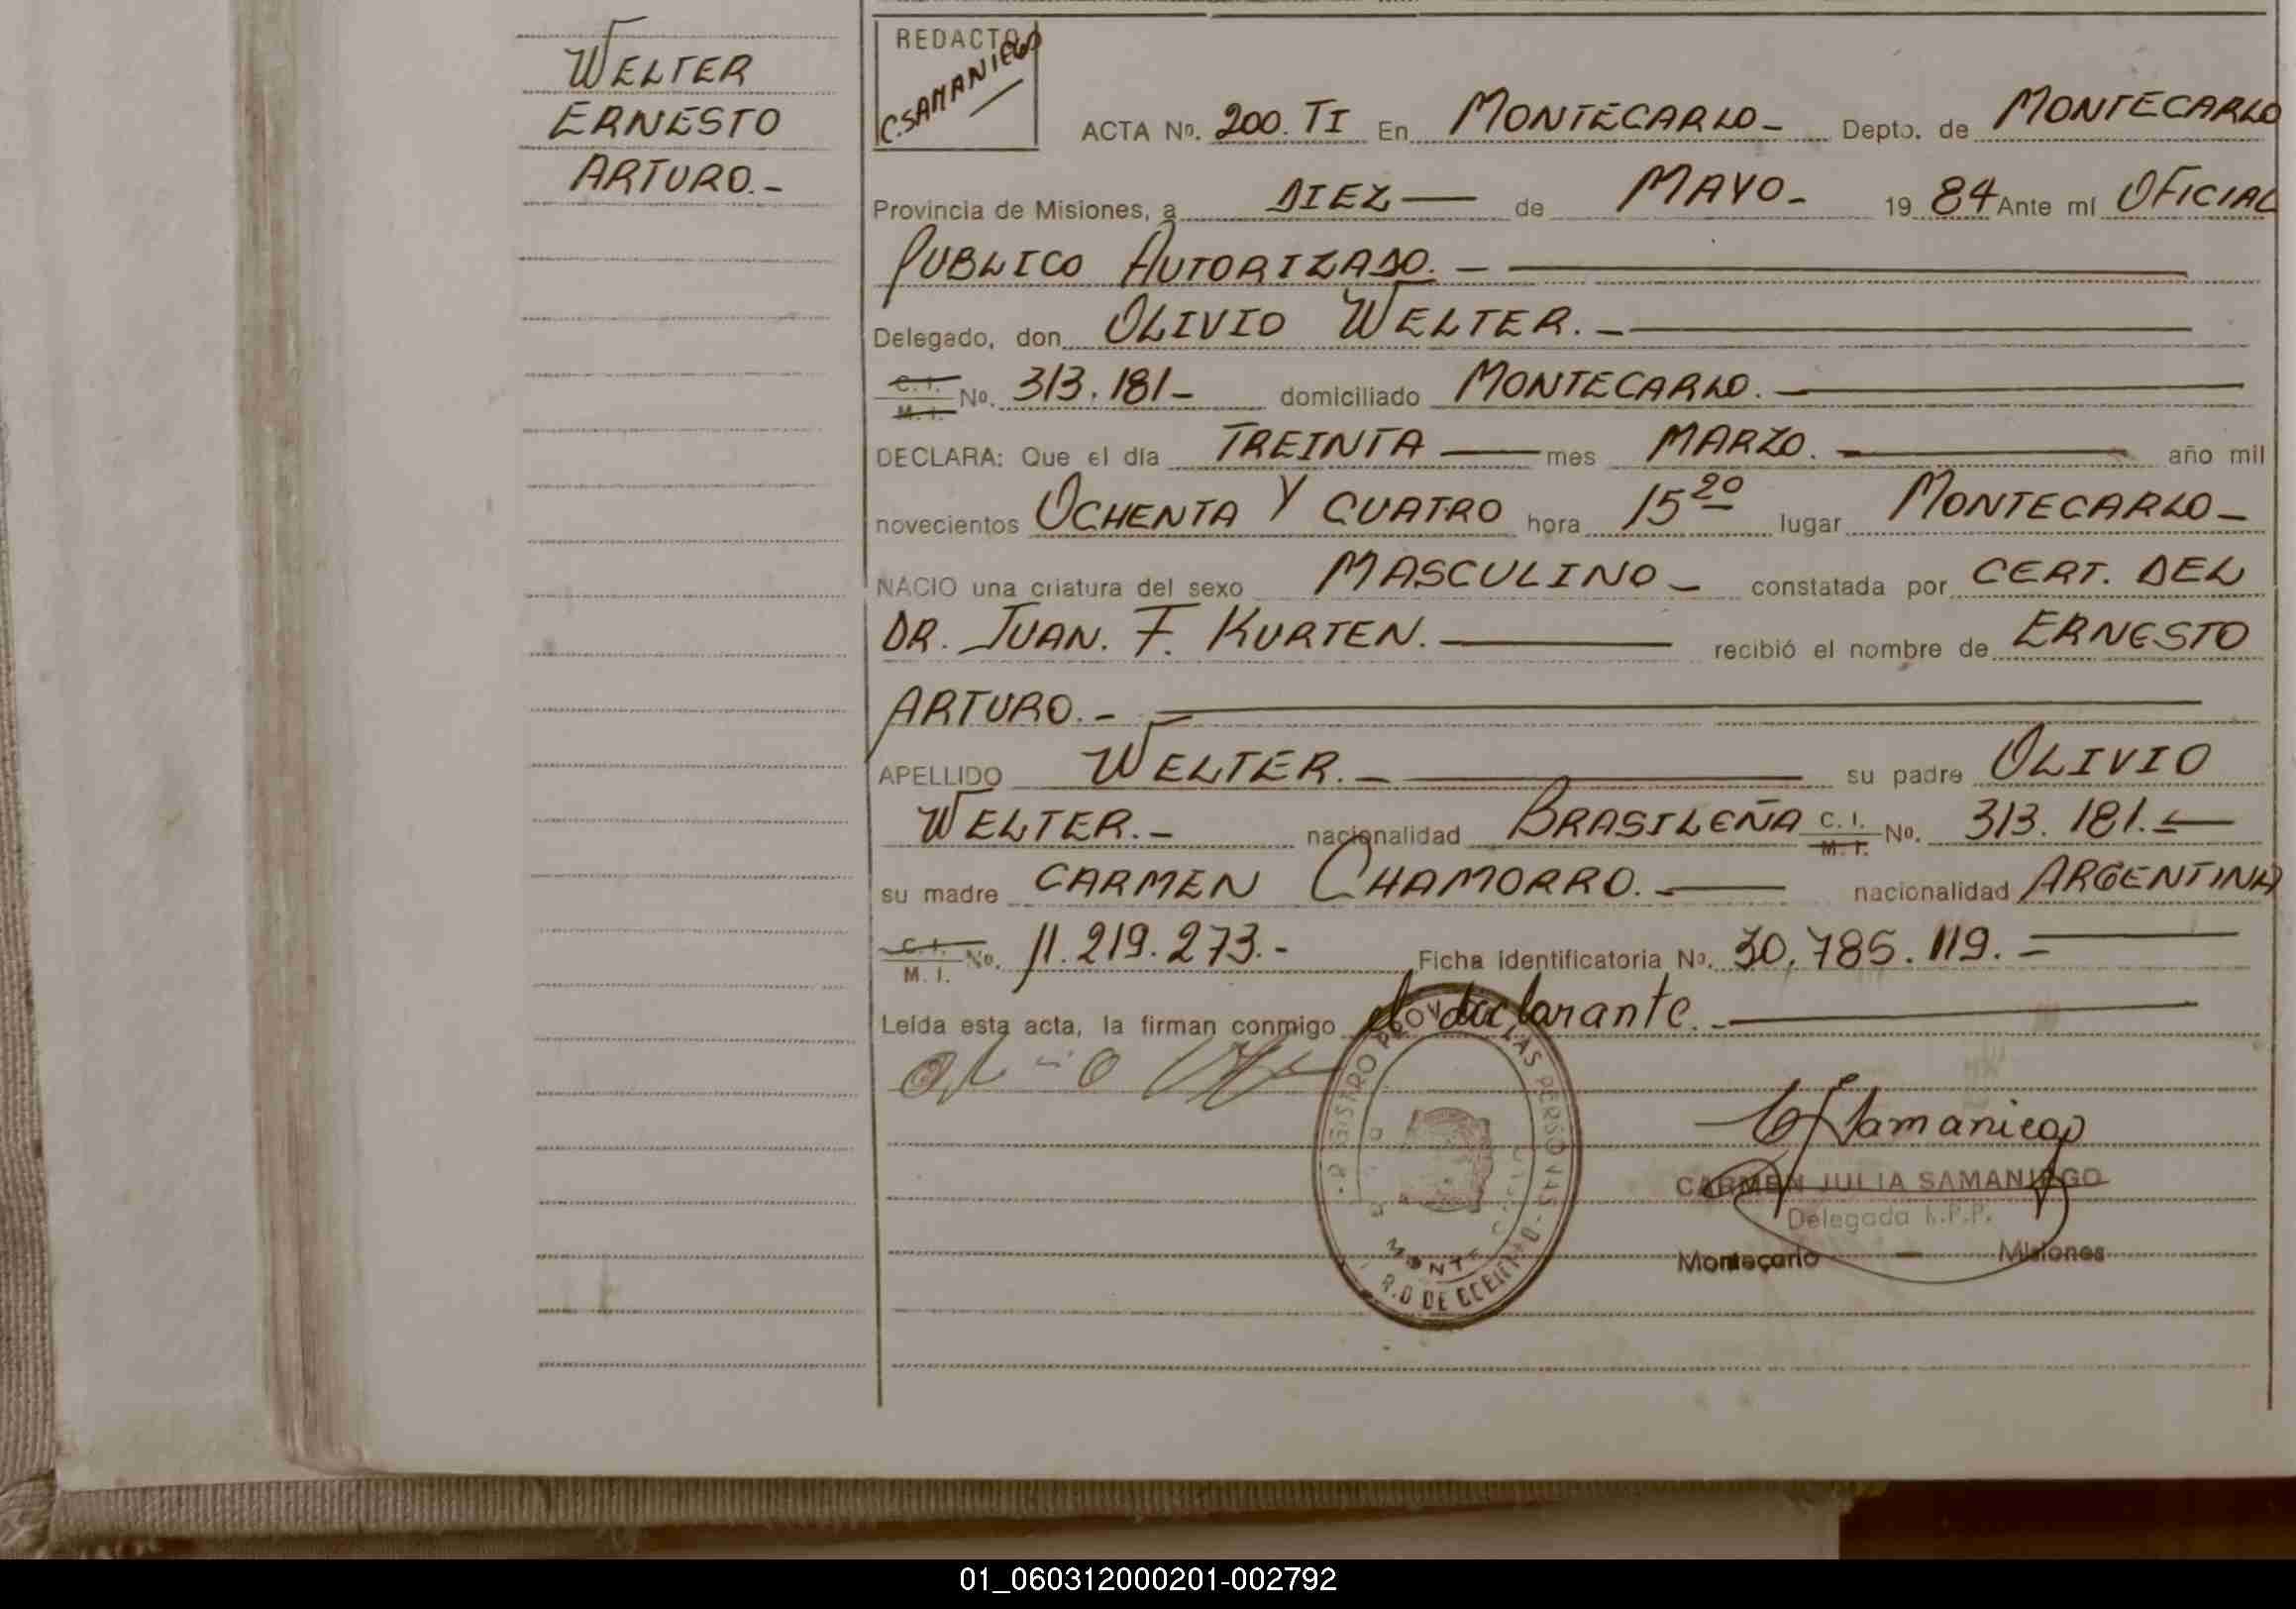 WELTER
ERNESTO
ARTURO.-
REDACTO
C.SAMANIEGO
ACTA Nº. 200. TI En MONTECARLO- Depto. de MONTECARLO
Provincia de Misiones, a DIEZ — de MAYO- 19 84 Ante mí OFICIAL
PUBLICO AUTORIZADO. -
Delegado, don OLIVIO WELTER. -
C. I. M. I. Nº. 313.181- domiciliado MONTECARLO. -
DECLARA: Que el día TREINTA — mes MARZO. — año mil
novecientos OCHENTA Y CUATRO hora 15 20 lugar MONTECARLO-
NACIO una criatura del sexo MASCULINO - constatada por CERT. DEL
DR. JUAN. F. KURTEN. — recibió el nombre de ERNESTO
ARTURO. -
APELLIDO WELTER. - su padre OLIVIO
WELTER. - nacionalidad BRASILEÑA C. I. M. I. Nº. 313. 181. -
su madre CARMEN CHAMORRO. - nacionalidad ARGENTINA
C. I. M. I. Nº. 11.219.273.- Ficha identificatoria Nº. 30.785.119. =
Leída esta acta, la firman conmigo el declarante. -
CSamaniego
CARMEN JULIA SAMANIEGO
Delegada
Montecarlo — Misiones
01_060312000201-002792